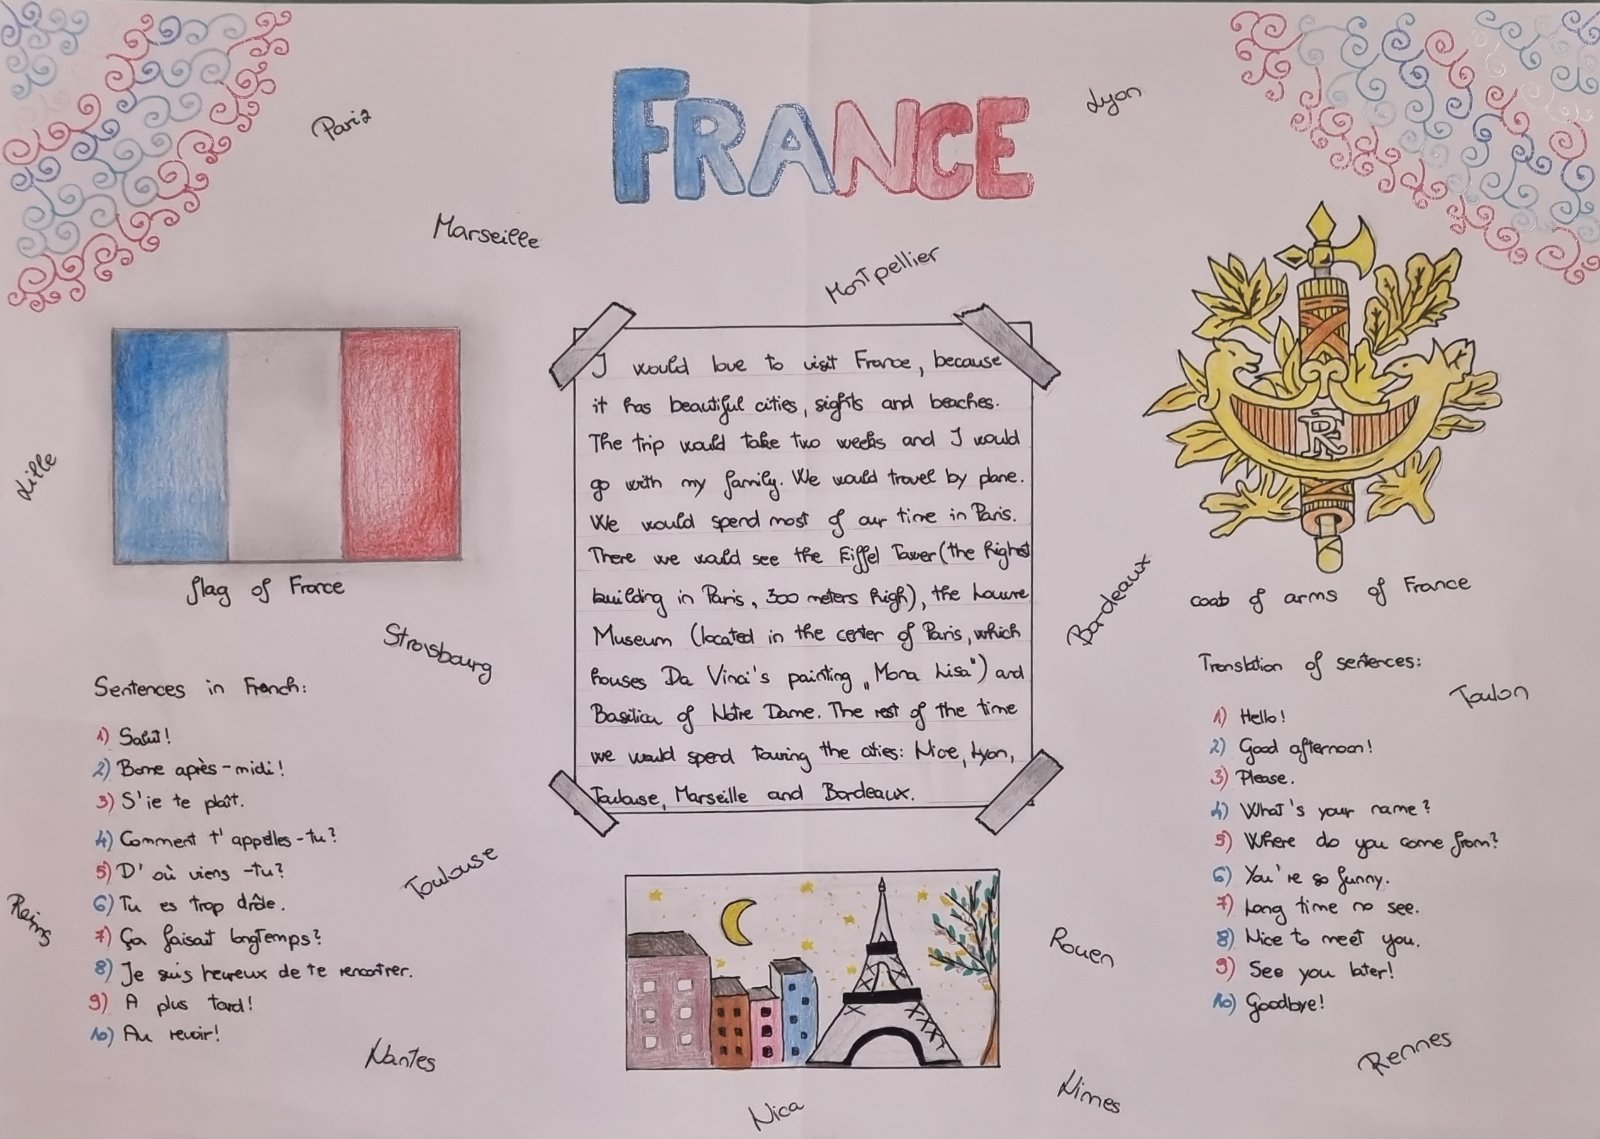 FRANCE
Paris
Lyon
Marseille
Montpellier
Lille
I would love to visit France, because
it has beautiful cities, sights and beaches.
The trip would take two weeks and I would
go with my family. We would travel by plane.
We would spend most of our time in Paris.
There we would see the Eiffel Tower (the highest
building in Paris, 300 meters high), the Louvre
Museum (located in the center of Paris, which
houses Da Vinci's painting „Mona Lisa") and
Basilica of Notre Dame. The rest of the time
we would spend touring the cities: Nice, Lyon,
Toulouse, Marseille and Bordeaux.
RF
flag of France
coat of arms of France
Bordeaux
Strasbourg
Sentences in French:
1) Salut!
2) Bonne après-midi!
3) S'ie te plaît.
4) Comment t'appelles-tu?
5) D'où viens -tu?
6) Tu es trop drôle.
7) Ça faisait longtemps?
8) Je suis heureux de te rencontrer.
9) A plus tard!
10) Au revoir!
Translation of sentences:
Toulon
1) Hello!
2) Good afternoon!
3) Please.
4) What's your name?
5) Where do you come from?
6) You're so funny.
7) Long time no see.
8) Nice to meet you.
9) See you later!
10) Goodbye!
Toulouse
Reims
Rouen
Nantes
Rennes
Nimes
Nica